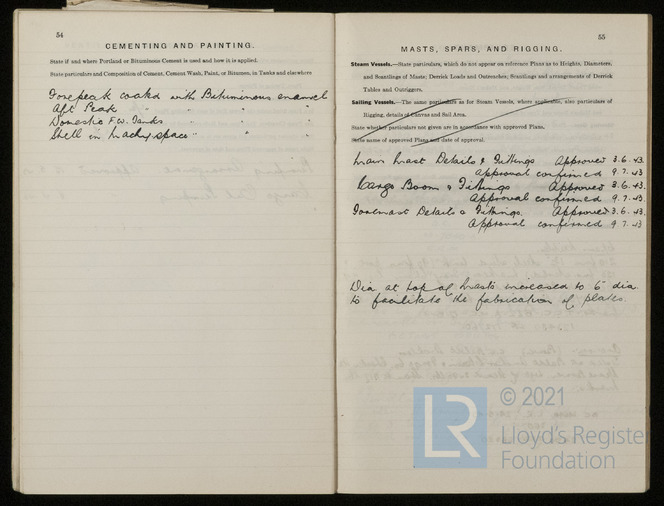 54
CEMENTING AND PAINTING.
State if and where Portland or Bituminous Cement is used and how it is applied.
State particulars and Composition of Cement, Cement Wash, Paint, or Bitumen, in Tanks and elsewhere
Forepeak coated with Bituminous enamel
Aft Peak " " "
Domestic F.W. Tanks " " "
Shell in Machy space " " "
55
MASTS, SPARS, AND RIGGING.
Steam Vessels.—State particulars, which do not appear on reference Plans as to Heights, Diameters,
and Scantlings of Masts; Derrick Loads and Outreaches; Scantlings and arrangements of Derrick
Tables and Outriggers.
Sailing Vessels.—The same particulars as for Steam Vessels, where applicable, also particulars of
Rigging, details of Canvas and Sail Area.
State whether particulars not given are in accordance with approved Plans.
State name of approved Plans and date of approval.
Main Mast Details & Fittings Approved 3.6.43.
Approval confirmed 9.7.43
Cargo Boom & Fittings Approved 3.6.43.
Approval confirmed 9.7.43.
Foremast Details & Fittings. Approved 3.6.43.
Approval confirmed 9.7.43
Dia at top of Masts increased to 6" dia
to facilitate the fabrication of plates.
LR
© 2021
Lloyd's Register
Foundation